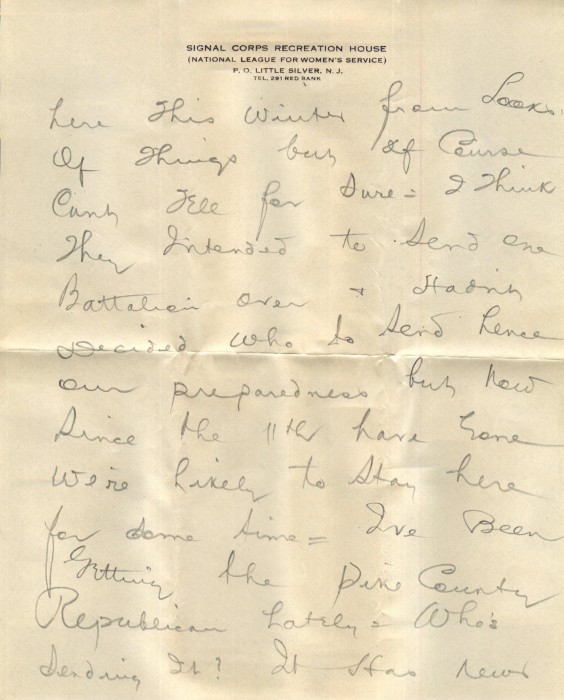 SIGNAL CORPS RECREATION HOUSE
(NATIONAL LEAGUE FOR WOMEN'S SERVICE)
P. O. LITTLE SILVER, N. J.
TEL. 291 RED BANK
here This Winter from Looks
Of Things but Of Course
Cant Tell for Sure = I Think
They Intended to Send one
Battalion over + Hadnt
Decided who to Send hence
our preparedness but Now
Since the 11th have Gone
We're likely to Stay here
for some time = I've Been
Getting the Pike County
Republican Lately = Who's
Sending It? It Has news